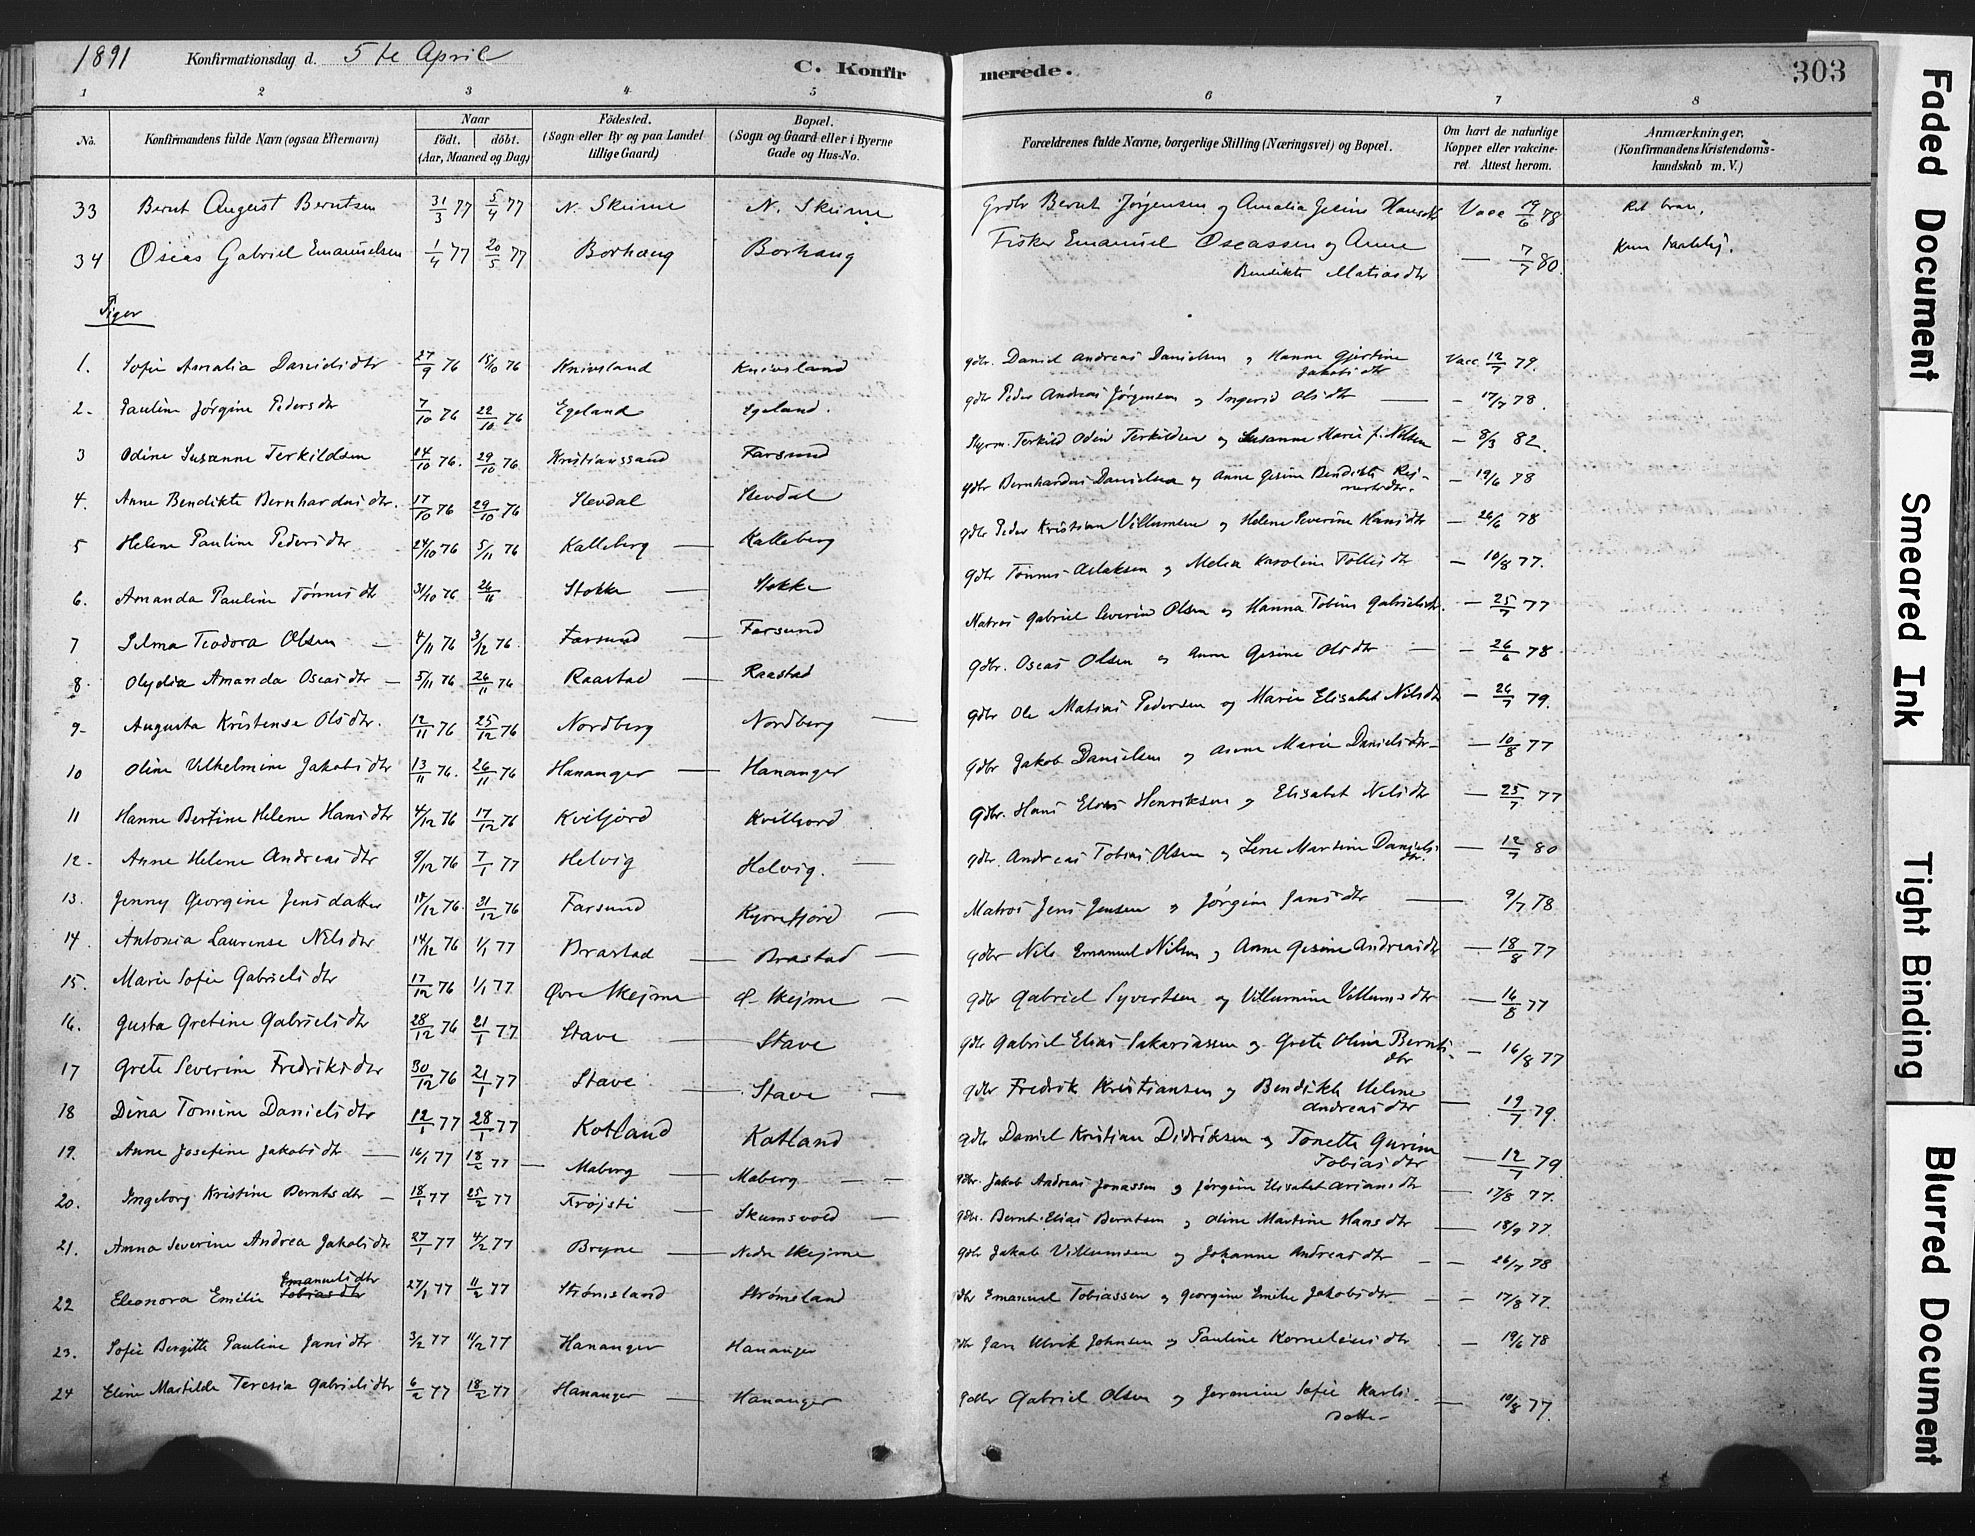 1891 Konfirmationsdag d. 5te April C. Konfirmerede. 303
1 2 3 4 5 6 7 8
No. Konfirmandens fulde Navn (ogsaa Efternavn) Naar født. døbt. (Aar, Maaned og Dag) Fødested. (Sogn eller By og paa Landet tillige Gaard) Bopæl. (Sogn og Gaard eller i Byerne Gade og Hus-No. Forældrenes fulde Navne, borgerlige Stilling (Næringsvei) og Bopæl. Om havt de naturlige Kopper eller vakcineret. Attest herom. Anmærkninger. (Konfirmandens Kristendomskundskab m. V.)
33 Bernt August Berntsen 31/3 77 5/4 77 N. Skeime N. Skeime Grdbr Bernt Jørgensen og Amalia Hansdtr Vacc 19/6 78
34 Oseas Gabriel Emanuelsen 1/4 77 20/5 77 Borhaug Borhaug Fisker Emanuel Oseassen og Anne
Bendikte Matiasdtr — 7/7 80.
Piger
1. Sofie Amalia Danielsdtr 27/9 76 15/10 76 Knivsland Knivsland gdbr. Daniel Andreas Danielsen og Hanne Gjertine
Jakobsdtr Vacc 12/7 79.
2. Pauline Jørgine Pedersdtr 7/10 76 22/10 76 Egeland Egeland. gdbr Peder Andreas Jørgensen og Ingerid Olsdtr — - 17/7 78.
3 Odine Susanne Terkildsen 24/10 76. 29/10 76 Kristianssand Farsund Styrm. Terkild Odin Terkildsen og Susanne Marie f. Nilsen - 8/3 82.
4. Anne Bendikte Bernhardusdtr. 17/10 76 29/10 76 Stevdal Stevdal gdbr Bernhardus Danielsen og Anne Gesine Bendikte Rei-
nertsdtr. - 19/6 78
5 Helene Pauline Pedersdtr 24/10 76 5/11 76 Kalleberg — Kalleberg gdbr Peder Kristian Villumsen og Helene Severine Hansdtr - 26/6 78
6. Amanda Pauline Tønnesdtr 31/10 76 26/11 Stokke — Stokke gdbr Tønnes Aslaksen og Melia Karoline Tollisdtr - 10/8 77.
7 Selma Teodora Olsen — 4/11 76 3/12 76. Farsund — Farsund Matros Gabriel Severin Olsen og Hanna Tobine Gabrielsdtr. - 25/7 77
8. Olydia Amanda Oseasdtr — 5/11 76 26/11 76 Raastad — Raastad gdbr. Oseas Olsen og Anne Gesine Olsdtr — - 26/6 78
9. Augusta Kristense Olsdtr. 12/11 76 25/12 76 Nordberg Nordberg — gdbr Ole Matias Pedersen og Marie Elisabet Nilsdtr - 26/7 79.
10 Oline Vilhelmine Jakobsdtr 13/11 76. 26/11 76 Hananger — Hananger gdbr Jakob Danielsen og Anne Marie Danielsdtr - 10/8 77
11 Hanne Bertine Helene Hansdtr 4/12 76 17/12 76 Kviljord Kviljord gdbr. Hans Elias Henriksen og Elisabet Nilsdtr — 25/7 77
12. Anne Helene Andreasdtr 9/12 76 7/1 77 Helvig Helvig. — gdbr. Andreas Tobias Olsen og Lene Martine Daniels-
dtr. — 12/7 80
13. Jenny Georgine Jensdatter 14/12 76. 31/12 76 Farsund Kyrrefjord — Matros Jens Jensen og Jørgine Jansdtr — 9/7 78
14. Antonia Laurense Nilsdtr 14/12 76 1/1 77 Brastad — Brastad — gdbr Nils Emanuel Nilsen og Anne Gesine Andreasdtr — 18/8 77
15. Marie Sofie Gabrielsdtr 17/12 76 1/1 77. Øvre Skejme Ø. Skejme — gdbr Gabriel Syvertsen og Villumine Villumsdtr — 16/8 77
16. Gusta Gretine Gabrielsdtr 28/12 76 21/1 77 Stave — Stave gdbr Gabriel Elias Sakariassen og Grete Oline Bernts-
dtr — 16/8 77
17 Grete Severine Fredriksdtr 30/12 76 21/1 77 Stave — Stave — gdbr Fredrik Kristiansen og Bendikte Helene
Andreasdtr — 19/7 79.
18 Dina Tomine Danielsdtr 12/1 77 28/1 77 Kotland Kotland gdbr Daniel Kristian Didriksen og Tonette Gurine
Tobiasdtr — 12/7 79
19. Anne Josefine Jakobsdtr — 16/1 77 18/2 77 — Maberg — Maberg — gdbr. Jakob Andreas Jonassen og Jørgine Elisabet Ariansdtr — 17/8 77.
20. Ingeborg Kristine Berntsdtr — 18/1 77 25/2 77 Frøjsti — Skumsvold — gdbr. Bernt Elias Berntsen og Oline Martine Hansdtr — 18/9 77.
21. Anna Severine Andrea Jakobsdtr 27/1 77 4/2 77 Bryne — Nedre Skejme gdbr Jakob Villumsen og Johanne Andreasdtr — 26/7 78
22 Eleonora Emilie Tobiasdtr Emanuelsdtr 27/1 77 11/2 77 Strømsland Strømsland gdbr Emanuel Tobiassen og Georgine Emilie Jakobsdtr — - 17/8 77.
23. Sofie Bergitte Pauline Jansdtr 3/2 77 11/2 77 Hananger Hananger gdbr Jan Ulrik Johnsen og Pauline Korneliusdtr - 19/6 78
24 Eline Mathilde Teresia Gabrielsdtr 6/2 77 18/2 77 Hananger — Hananger gdbr Gabriel Olsen og Jeremine Sofie Karls-
datter — 10/8 77.
Faded Document
Smeared Ink
Tight Binding
Blurred Document